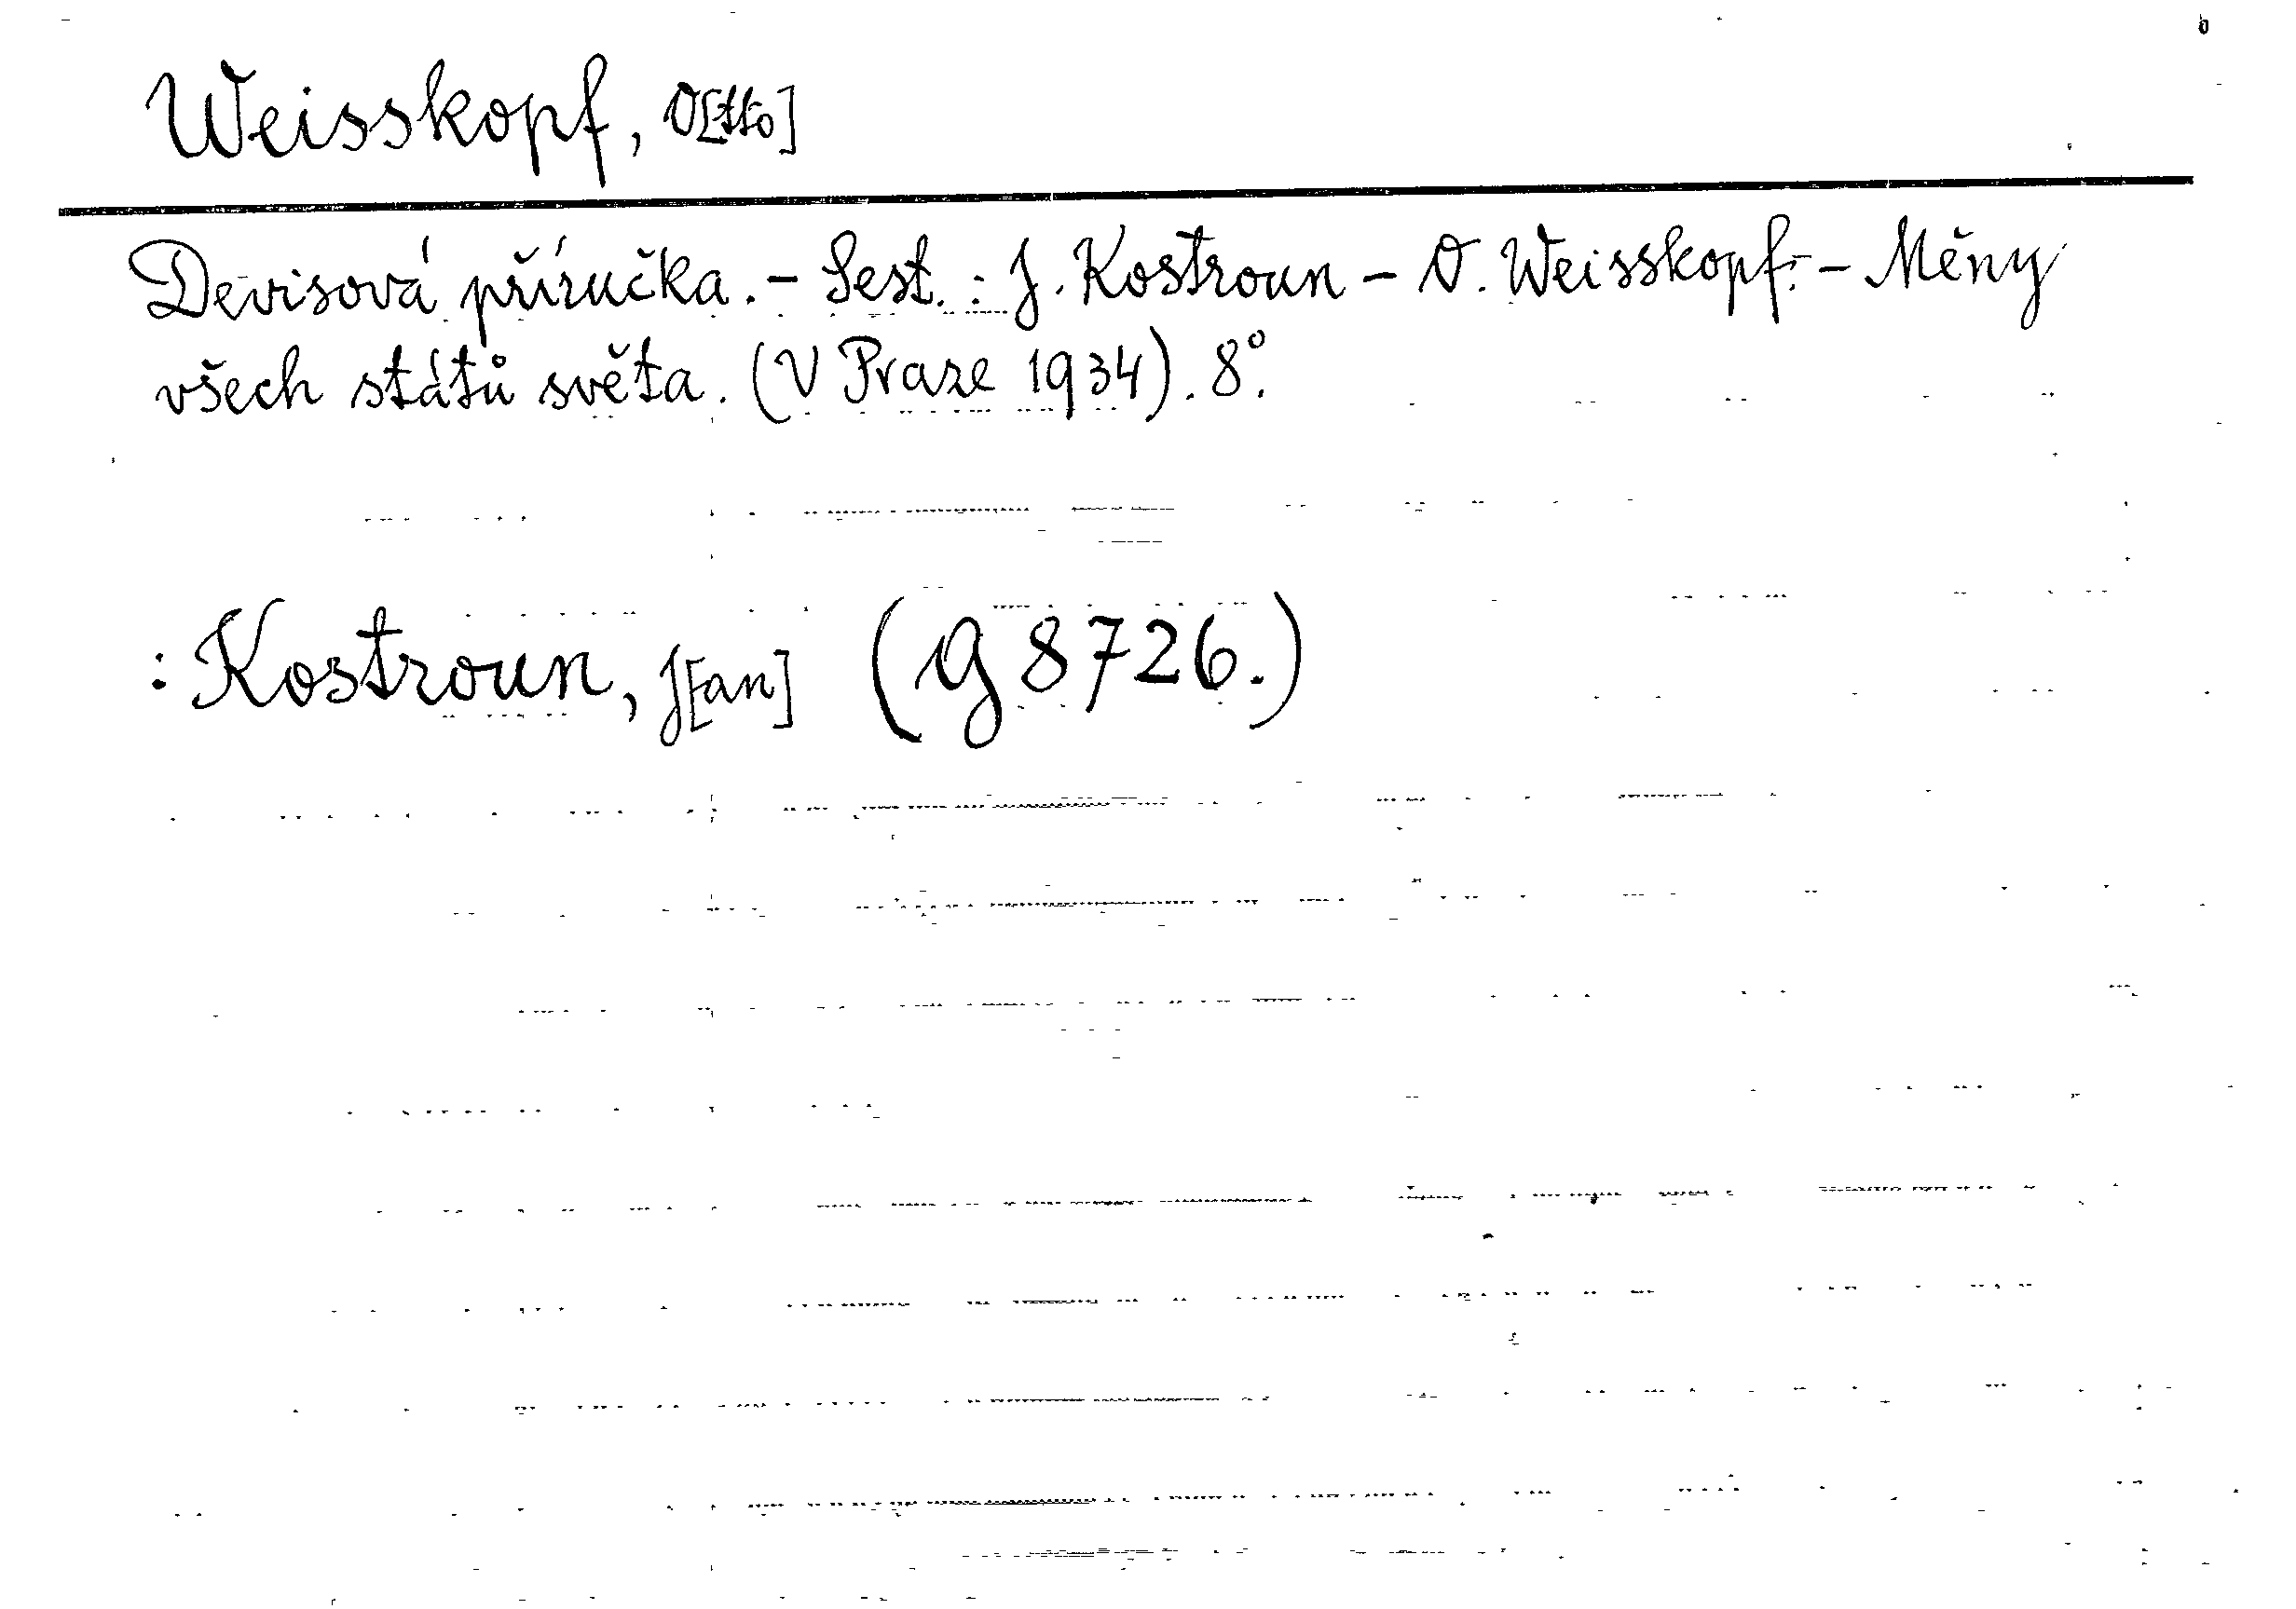 Weisskopf, O[tto]
Devisová příručka. - Sest.: J. Kostroun - O. Weisskopf. - Měny
všech států světa. (V Praze 1934). 8°.
: Kostroun, J[an] (g 8726.)